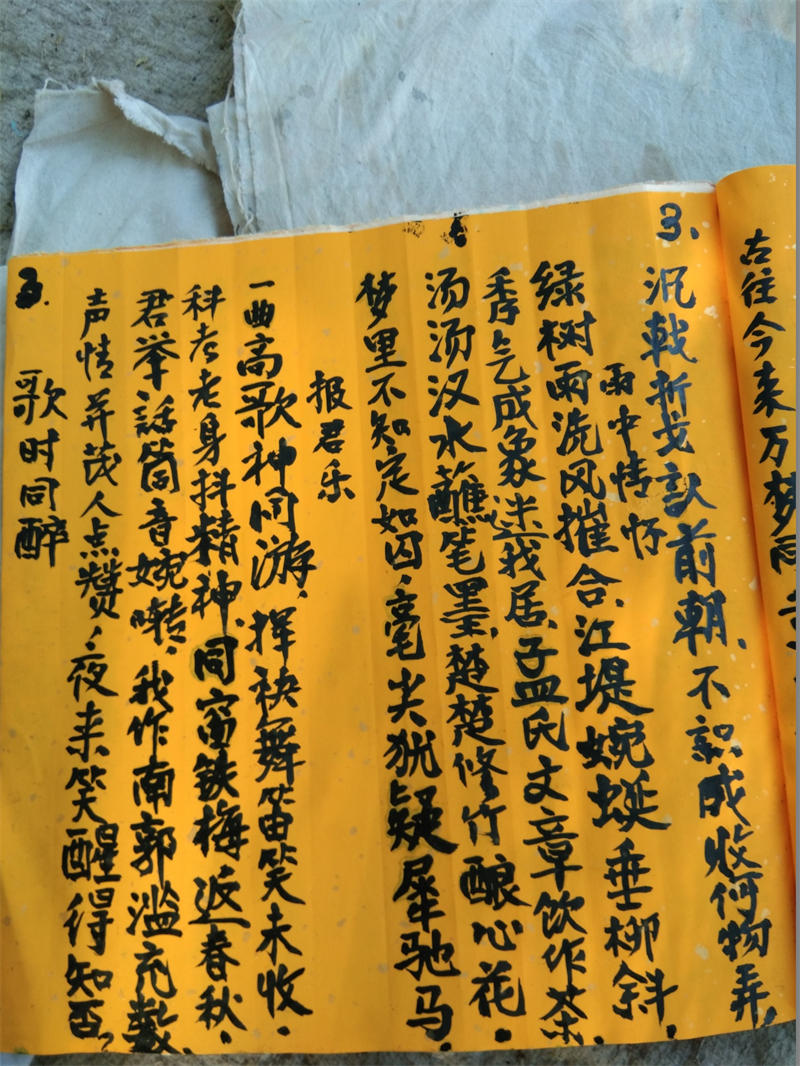 古往今来万梦同
3.
沉戟折戈认前朝、不知成收何物弄,
雨中情怀
绿树雨洗风摧合、江堤蜿蜒垂柳斜.
秀气成象迷我居、孟氏文章饮作茶.
汤汤汉水蘸笔墨、楚楚修竹酿心花.
梦里不知定如囚、毫尖犹疑犀驰马
报君乐
一曲高歌神同游、挥袂舞笛笑未收.
科者老身抖精神、同窗铁梅返春秋.
君举话筒音婉啭、我作南郭滥充数.
声情并茂人点赞、夜来笑醒得知否?
3.
歌时同醉